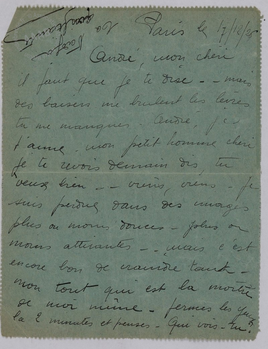 Paris le 17/12/25
André, mon chéri
il faut que je te dise - - mais
des baisers me brûlent les lèvres
tu me manques. André. je
t'aime. mon petit homme chéri
Je te revois demain dis tu
veux bien - - viens, viens - je
suis perdue dans des images
plus ou moins douces - plus ou
moins attirantes - - mais c'est
encore bon de craindre tant -
mon tout qui est la moitié
de moi même - fermes les yeux
la 2 minutes et penses - Que vois-tu